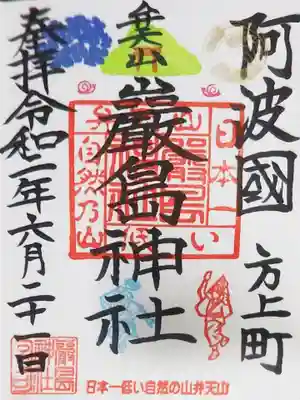 阿波國 方上町
弁天山
嚴島神社
奉拝 令和二年六月二十一日
日本一
低い
自然乃山
日本一低い自然の山弁天山